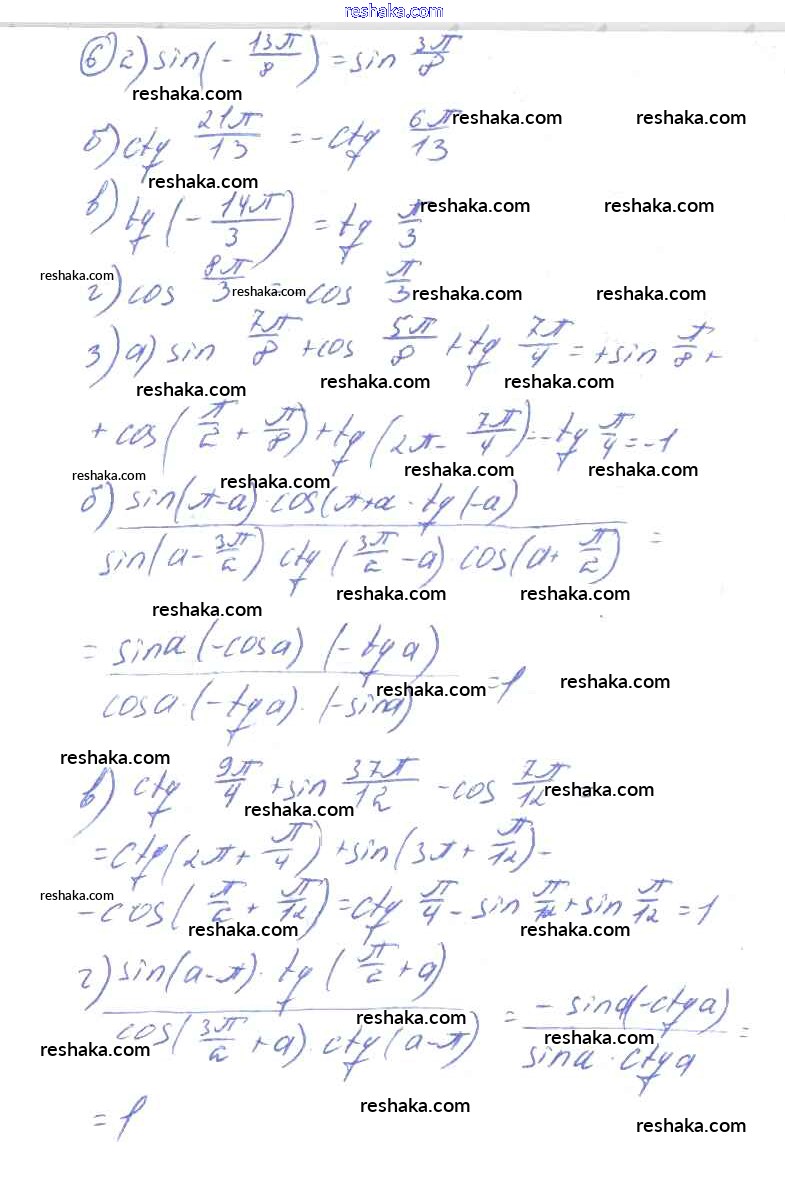 reshaka.com
6 2) sin(-13π/8) = sin 3π/8
reshaka.com
reshaka.com reshaka.com
б) ctg 21π/13 = -ctg 6π/13
reshaka.com
в) tg(-14π/3) = tg π/3
reshaka.com reshaka.com
reshaka.com
г) cos 8π/3 = -cos π/3
reshaka.com reshaka.com reshaka.com
3) а) sin 7π/8 + cos 5π/8 + tg 7π/4 = + sin π/8 +
reshaka.com reshaka.com reshaka.com
+ cos(π/2 + π/8) + tg(2π - 7π/4) = -tg π/4 = -1
reshaka.com reshaka.com reshaka.com reshaka.com
б) sin(π-a)·cos(π+a·tg(-a) / sin(a - 3π/2) ctg(3π/2 - a)·cos(a + π/2) =
reshaka.com reshaka.com reshaka.com
= sina(-cosa)(-tga) / cosa·(-tga)·(-sina) = 1
reshaka.com reshaka.com
reshaka.com
в) ctg 9π/4 + sin 37π/12 - cos 7π/12 =
reshaka.com reshaka.com
= ctg(2π + π/4) + sin(3π + π/12) -
reshaka.com
- cos(π/2 + π/12) = ctg π/4 - sin π/12 + sin π/12 = 1
reshaka.com reshaka.com
г) sin(a-π)·tg(π/2 + a) / cos(3π/2 + a)·ctg(a-π) = - sina(-ctga) / sina·ctga =
reshaka.com reshaka.com reshaka.com
= 1
reshaka.com reshaka.com